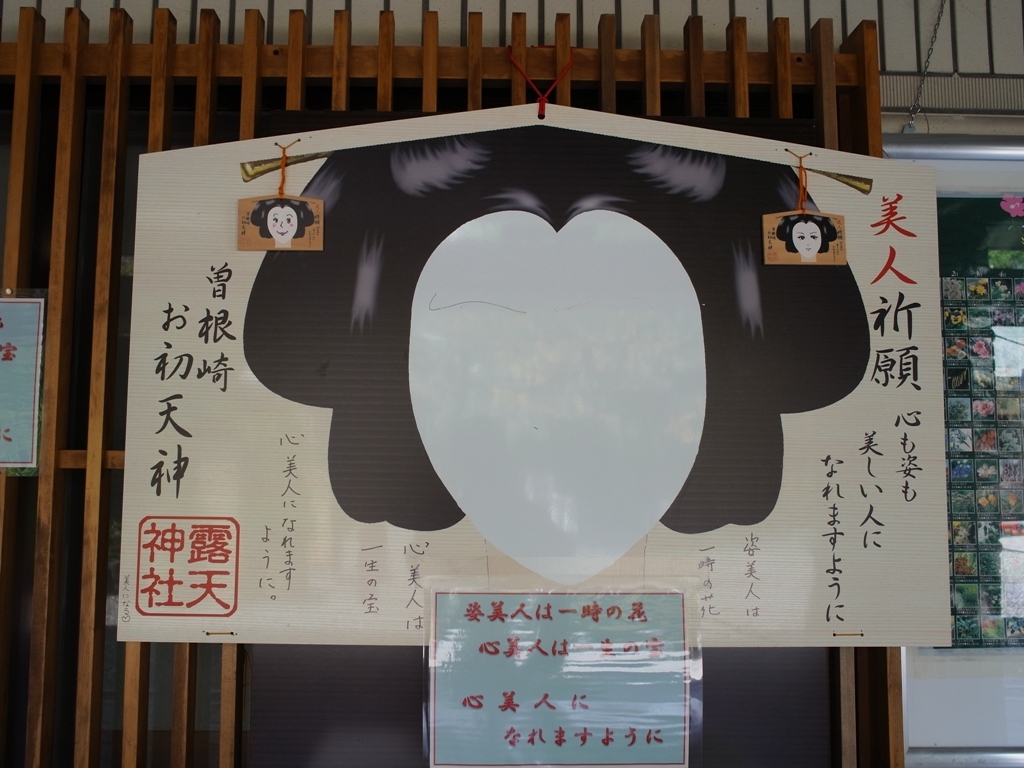 美人祈願
心も姿も
美しい人に
なれますように
姿美人は
一時の花
心美人は
一生の宝
心美人になれます
ように。
曽根崎
お初天神
露天
神社
美人になる
姿美人は一時の花
心美人は一生の宝
心美人に
なれますように
宝
に